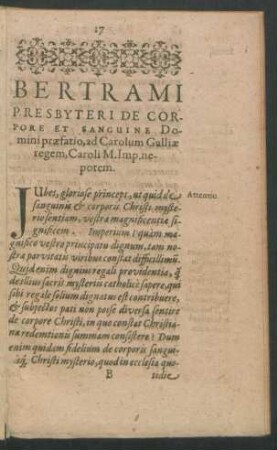 17
BERTRAMI
PRESBYTERI DE COR-
PORE ET SANGUINE Do-
mini præfatio, ad Carolum Galliæ
regem, Caroli M. Imp. ne-
potem.
JUbes, gloriose princeps, ut quid de
sanguinis & corporis Christi myste-
rio sentiam, vestræ magnificentiæ si-
gnificem. Imperium quàm ma-
gnifico vestro principatu dignum, tam no-
stræ parvitatis viribus constat difficillimũ.
Quid enim dignius regali providentia, q̃
de illius sacris mysteriis catholicè sapere, qui
sibi regale solium dignatus est contribuere,
& subjectos pati non posse diversa sentire
de corpore Christi, in quo constat Christia-
næ redemtionis summam consistere? Dum
enim quidam fidelium de corporis sangui-
nisq́; Christi mysterio, quod in ecclesia quo-
B tidie